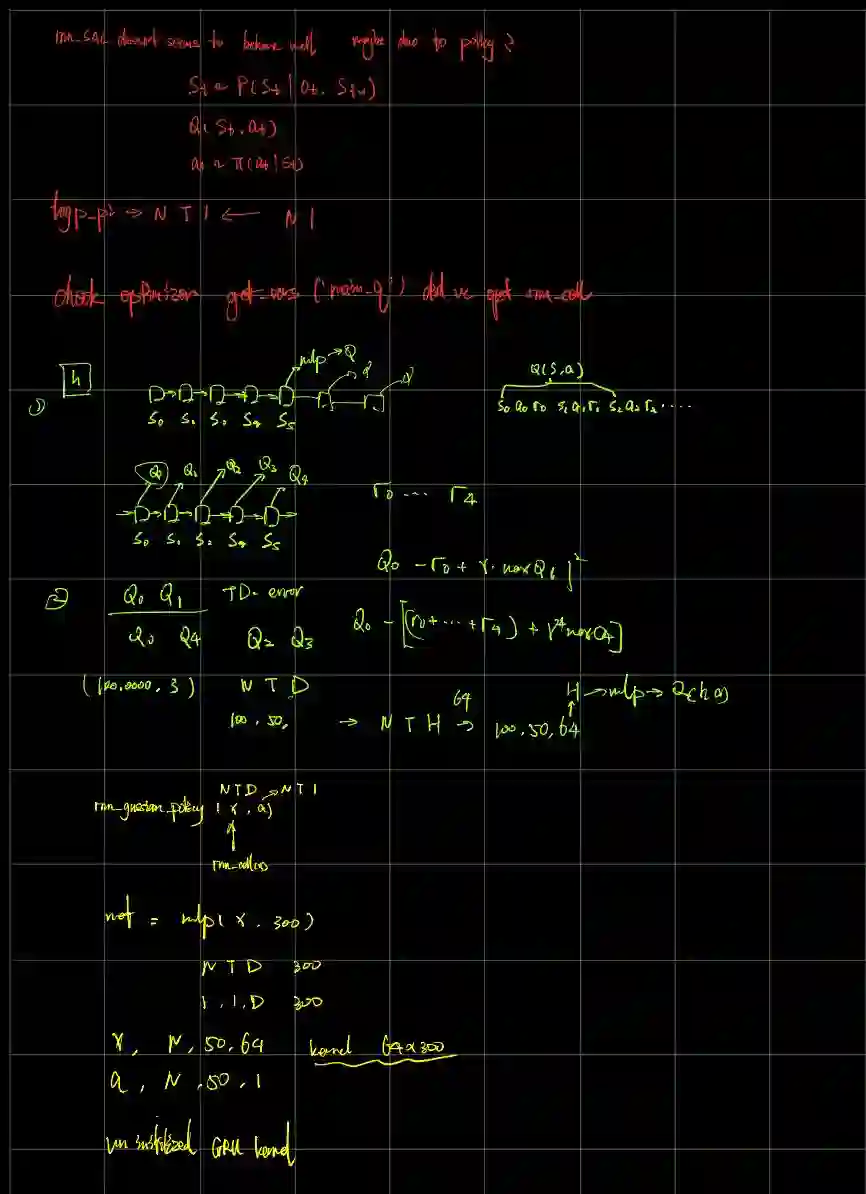 rnn_sac doesnt seems to behave well maybe due to policy?
St ~ P(St | Ot, St-1)
Q(St, at)
at ~ π(at | St)
logp_pi → N T 1 ← N 1
check optimizer get_vars ('main_q') did we get rnn_cell
h
mlp → Q
Q(S, a)
①
S0 a0 r0 S1 a1 r1 S2 a2 r2 ....
Q1 Q2 Q3 Q4
r0 ... r4
Q0 - r0 + γ · max Q1]²
② Q0 Q1 TD-error
Q0 Q4 Q2 Q3
Q0 - [(r0 + ... + r4) + γ max Q4]
N T D
100, 50, → N T H → 64 100, 50, 64
H → mlp → Q(h, a)
NTD → NT1
rnn_gaussian_policy (x, a)
net = mlp(x, 300)
N T D 300
1, 1, D 300
x, N, 50, 64 kernel 64x300
a, N, 50, 1
GRU kernel